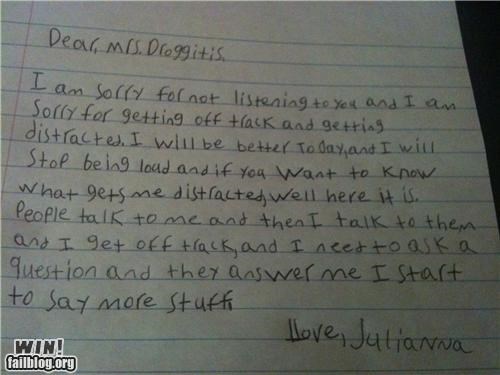 Dear, Mrs. Droggitis.
I am sorry for not listening to you and I am
sorry for getting off track and getting
distracted. I will be better today, and I will
stop being load and if you want to know
what gets me distracted, well here it is.
People talk to me and then I talk to them
and I get off track, and I need to ask a
question and they answer me I start
to say more stuff.
Love, Julianna
WIN!
failblog.org